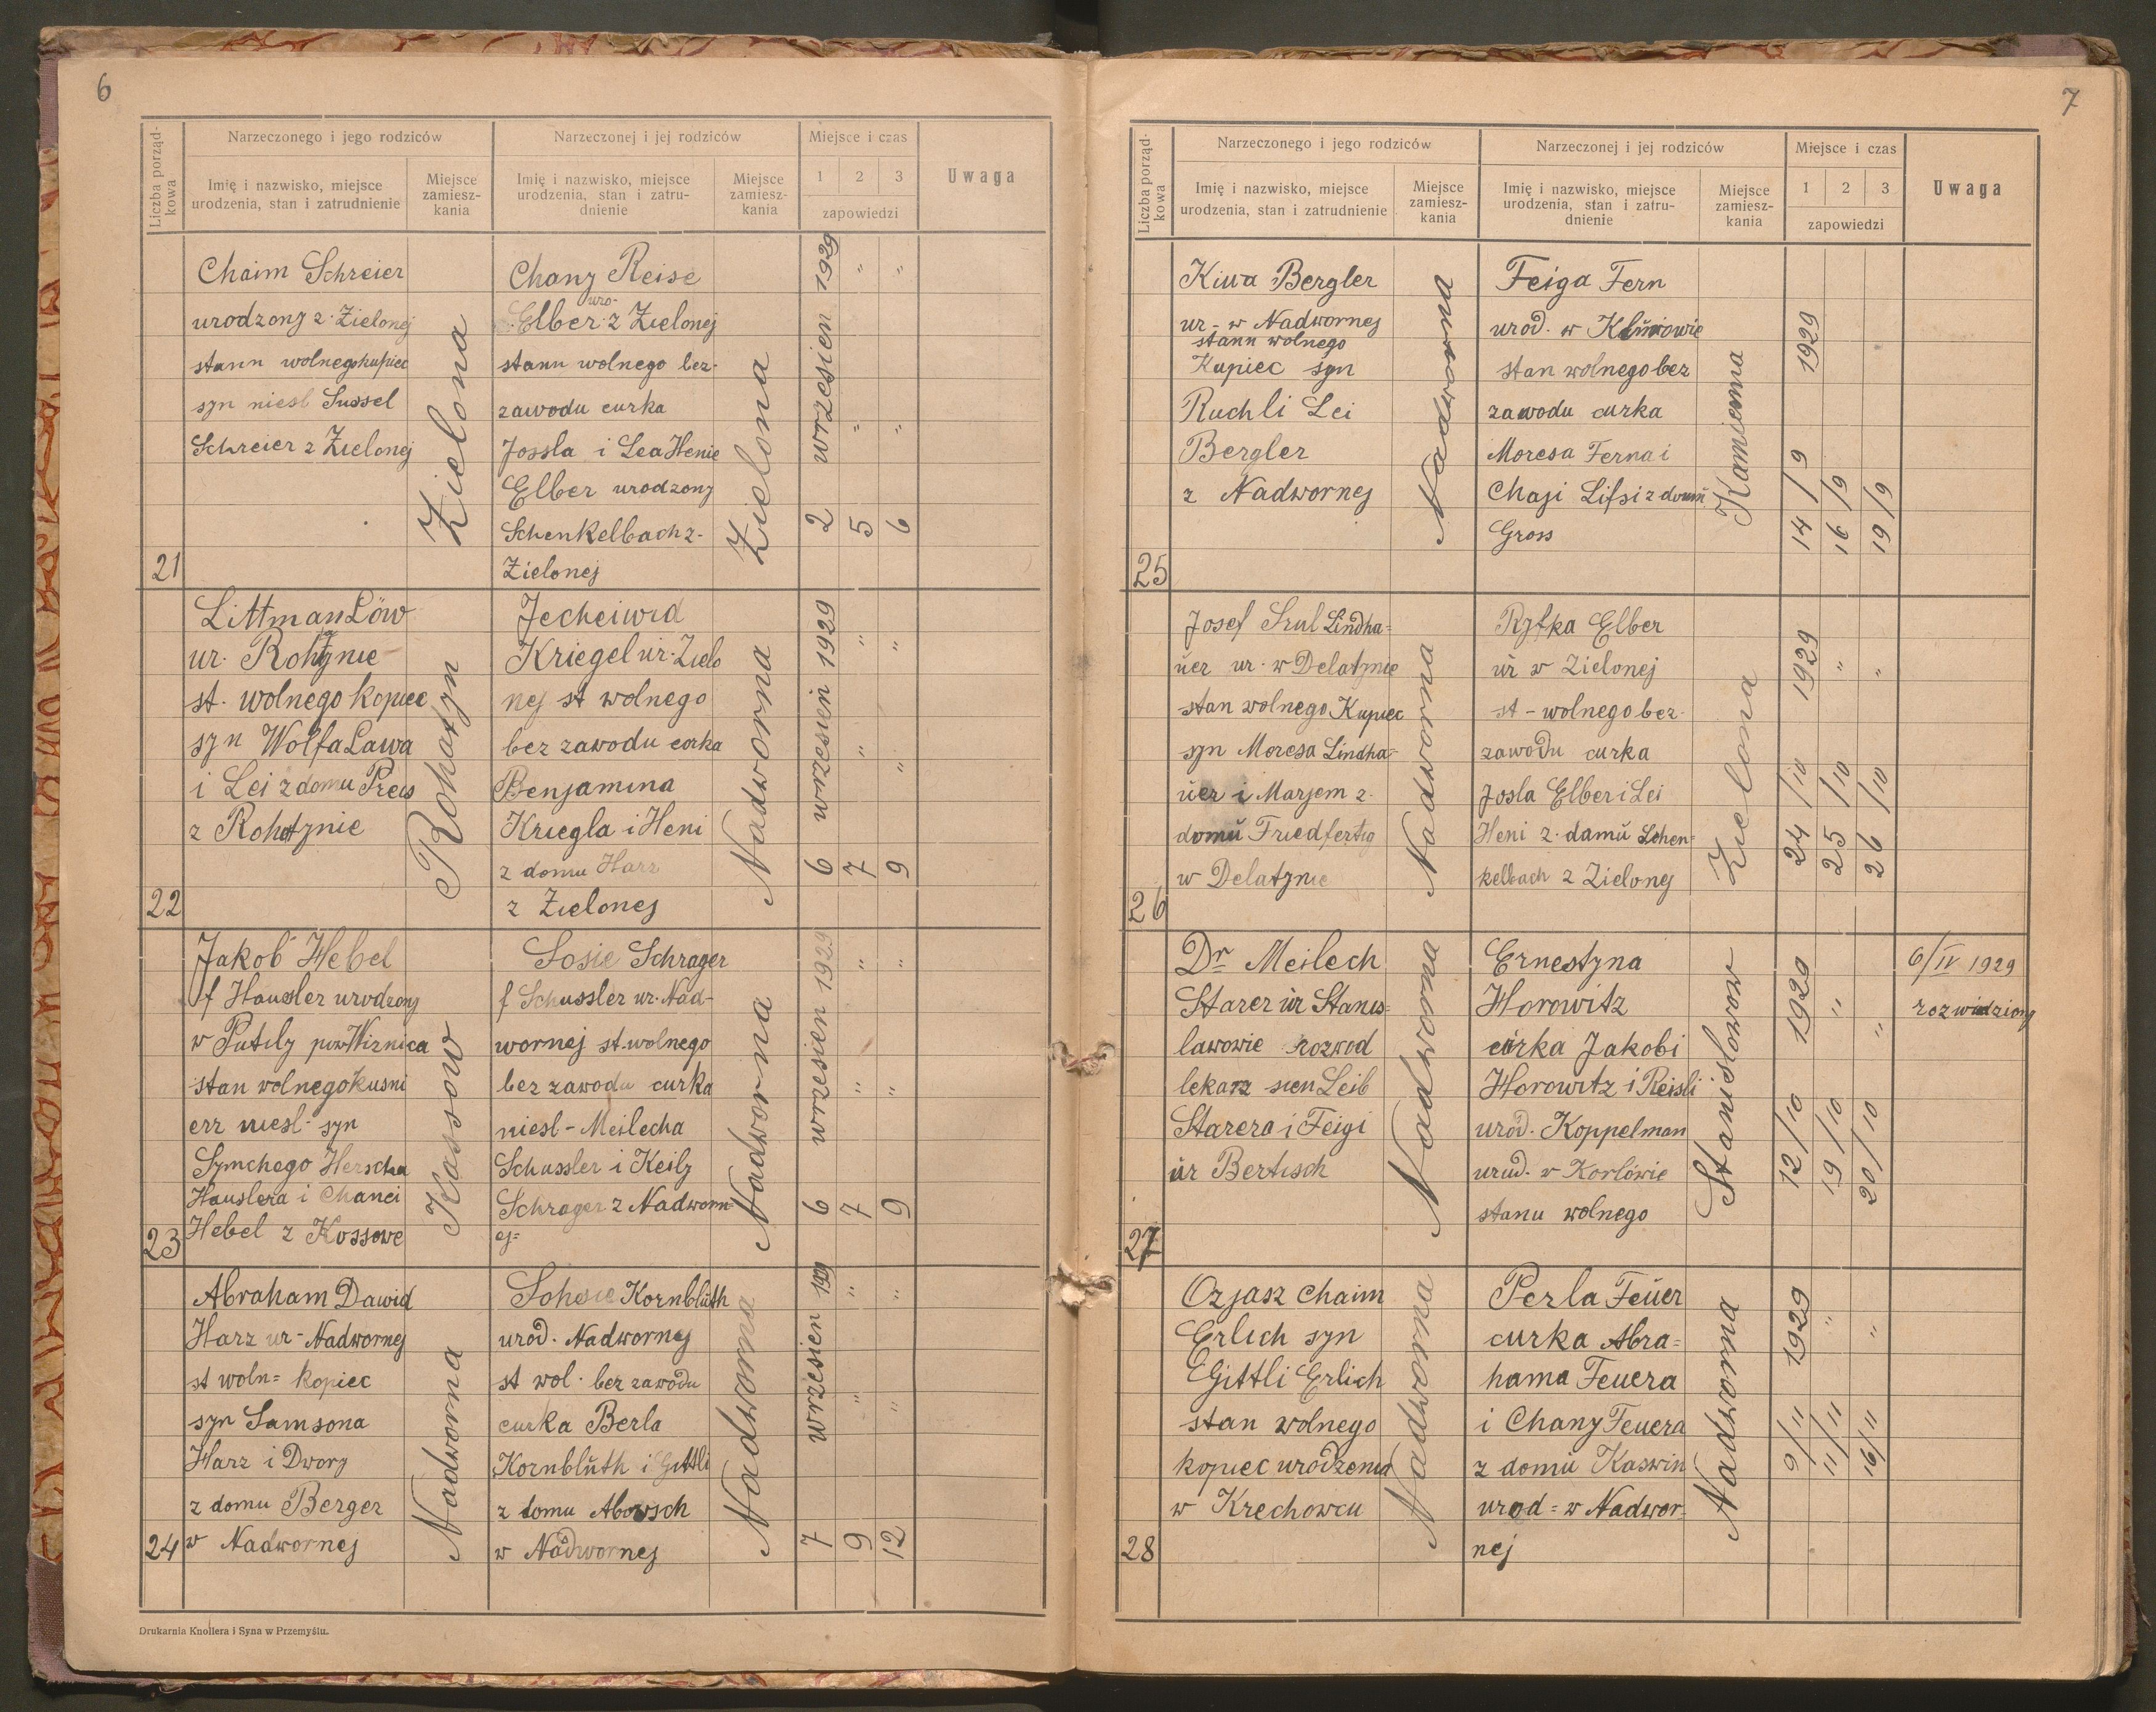 6
Liczba porząd-
kowa
Narzeczonego i jego rodziców
Narzeczonej i jej rodziców
Miejsce i czas
Uwaga
Imię i nazwisko, miejsce
urodzenia, stan i zatrudnienie
Miejsce
zamiesz-
kania
Imię i nazwisko, miejsce
urodzenia, stan i zatru-
dnienie
Miejsce
zamiesz-
kania
1 2 3
zapowiedzi
21
Chaim Schreier
urodzony z. Zielonej
stann wolnego kupiec
syn niesl Sussel
Schreier z Zielonej
Zielona
Chany Reise
uro-
Elber z Zielonej
stann wolnego bez-
zawodu curka
Jossla i Lea Henie
Elber urodzony
Schenkelbach z-
Zielonej
Zielona
2 wrzesien 1929
5 " "
6 " "
22
Littman Löw
ur. Rohtynie
st. wolnego kopiec
syn Wolfa Lawa
i Lei z domu Preis
z Rohatynie
Rohatyn
Jecheiwid
Kriegel ur. Zielo
nej st wolnego
bez zawodu corka
Benjamina
Kriegla i Heni
z domu Harz
z Zielonej
Nadworna
6 wrzesień 1929
7 " "
9 " "
23
Jakob Hebel
f Hausler urodzony
w Putily pow Wiznica
stan wolnego kusni
err niesl- syn
Symchego Herscha
Hauslera i Chanci
Hebel z Kossowe
Kossow
Sosie Schrager
f Schussler ur. Nad-
wornej st. wolnego
bez zawodu curka
niesl- Meilecha
Schussler i Keily
Schrager z Nadworn=
ej=
Nadworna
6 wrzesien 1929
7 " "
9 " "
24
Abraham Dawid
Harz ur- Nadwornej
st woln= kopiec
syn Samsona
Harz i Dwory
z domu Berger
w Nadwornej
Nadworna
Sohsie Kornblŭth
urod. Nadwornej
st wol. bez zawodu
curka Berla
Kornblŭth i Gittli
z domu Abowsch
w Nadwornej
Nadworna
7 wrzesien 1929
9 " "
12 " "
Drukarnia Knollera i Syna w Przemyślu.
7
Liczba porząd-
kowa
Narzeczonego i jego rodziców
Narzeczonej i jej rodziców
Miejsce i czas
Uwaga
Imię i nazwisko, miejsce
urodzenia, stan i zatrudnienie
Miejsce
zamiesz-
kania
Imię i nazwisko, miejsce
urodzenia, stan i zatru-
dnienie
Miejsce
zamiesz-
kania
1 2 3
zapowiedzi
25
Kiwa Bergler
ur- w Nadwornej
stann wolnego
Kupiec syn
Ruchli Lei
Bergler
z Nadwornej
Nadworna
Feiga Fern
urod. w
stan wolnego bez
zawodu curka
Moresa Ferna i
Chaji Lifsi z domŭ
Gross
Kamienna
14/9 1929
16/9
19/9
26
Josef Srul Lindha=
ŭer ur. w Delatynie
stan wolnego Kupiec
syn Moresa Lindha=
ŭer i Marjem z.
domŭ Friedfertig
w Delatynie
Nadworna
Ryfka Elber
ŭr w Zielonej
st- wolnego bez-
zawodu curka
Josla Elber i Lei
Heni z. damŭ Schen=
kelbach z Zielonej
Zielona
24/10 1929
25/10 "
26/10 "
27
Dr Meilech
Starer ŭr Stanis=
lawowie rozwod
lekarz sien Leib
Starera i Feigi
ŭr Bertisch
Nadworna
Ernestyna
Horowitz
cŭrka Jakobi
Horowitz i Reisli
urod. Koppelman
urud. w Korlówie
stanu wolnego
Stanislowow
12/10 1929
19/10 "
20/10 "
6/IV 1929
rozwiedziony
28
Ozjasz Chaim
Erlich syn
Gittli Erlich
stan wolnego
kopiec urodzenia
w Krechowcu
Nadworna
Perla Feŭer
curka Abra=
hama Feuera
i Chany Feuera
z domŭ Kaswin
urod= w Nadwor-
nej
Nadworna
9/11 1929
11/11 "
16/11 "